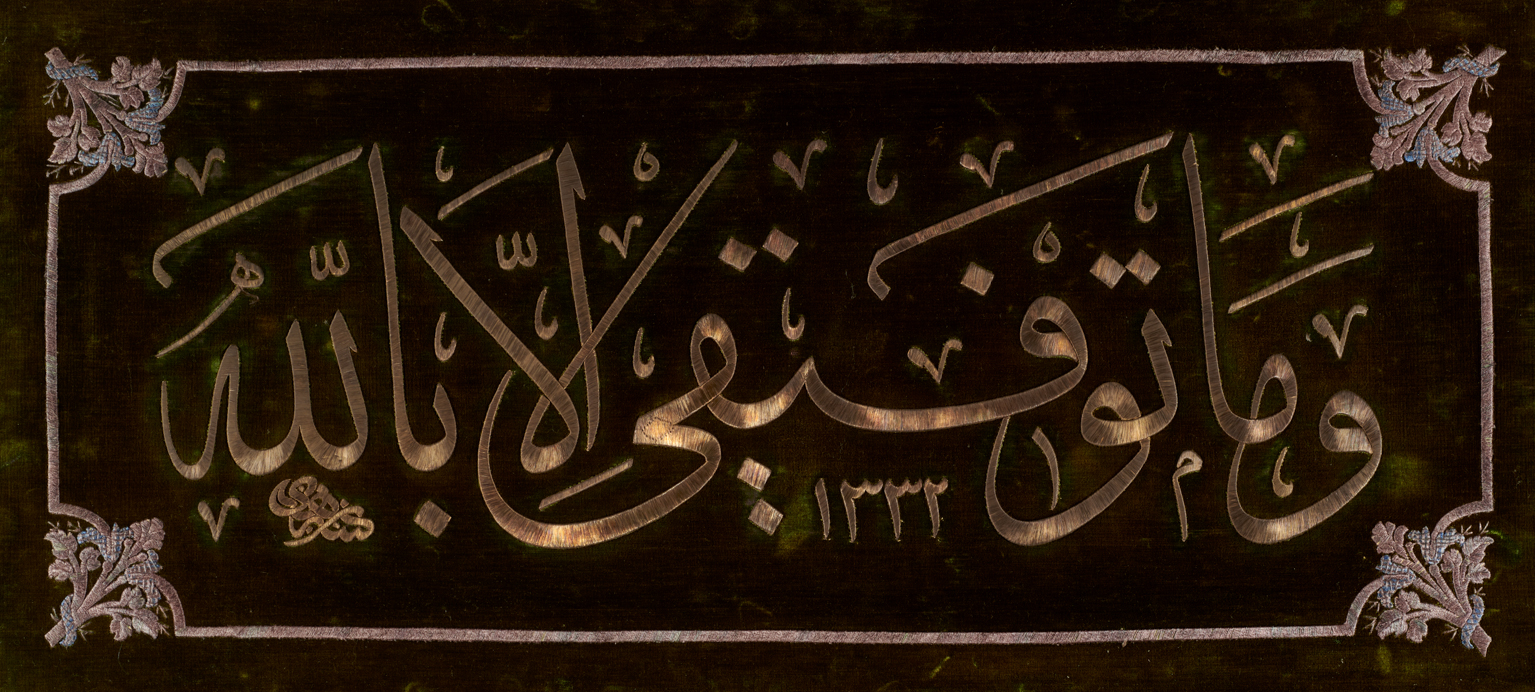 وما توفيقي إلا بالله
١٣٣٢